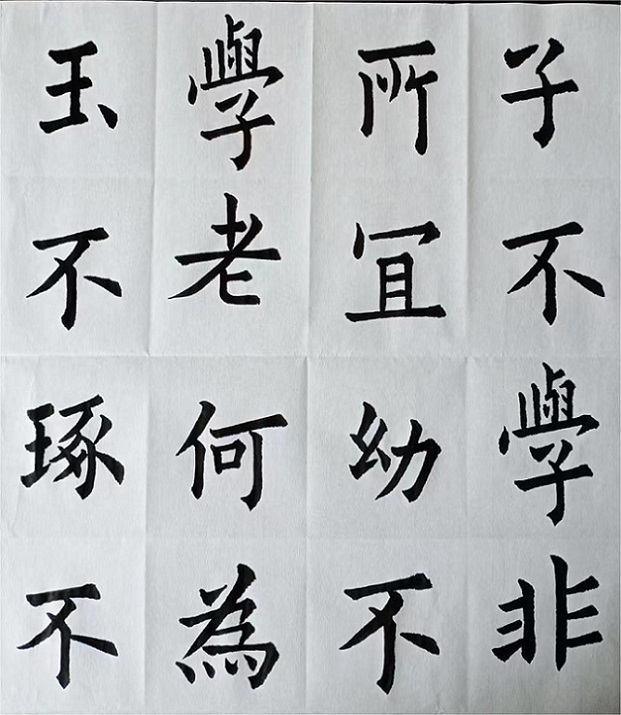 子不學非
所宜幼不
學老何為
玉不琢不